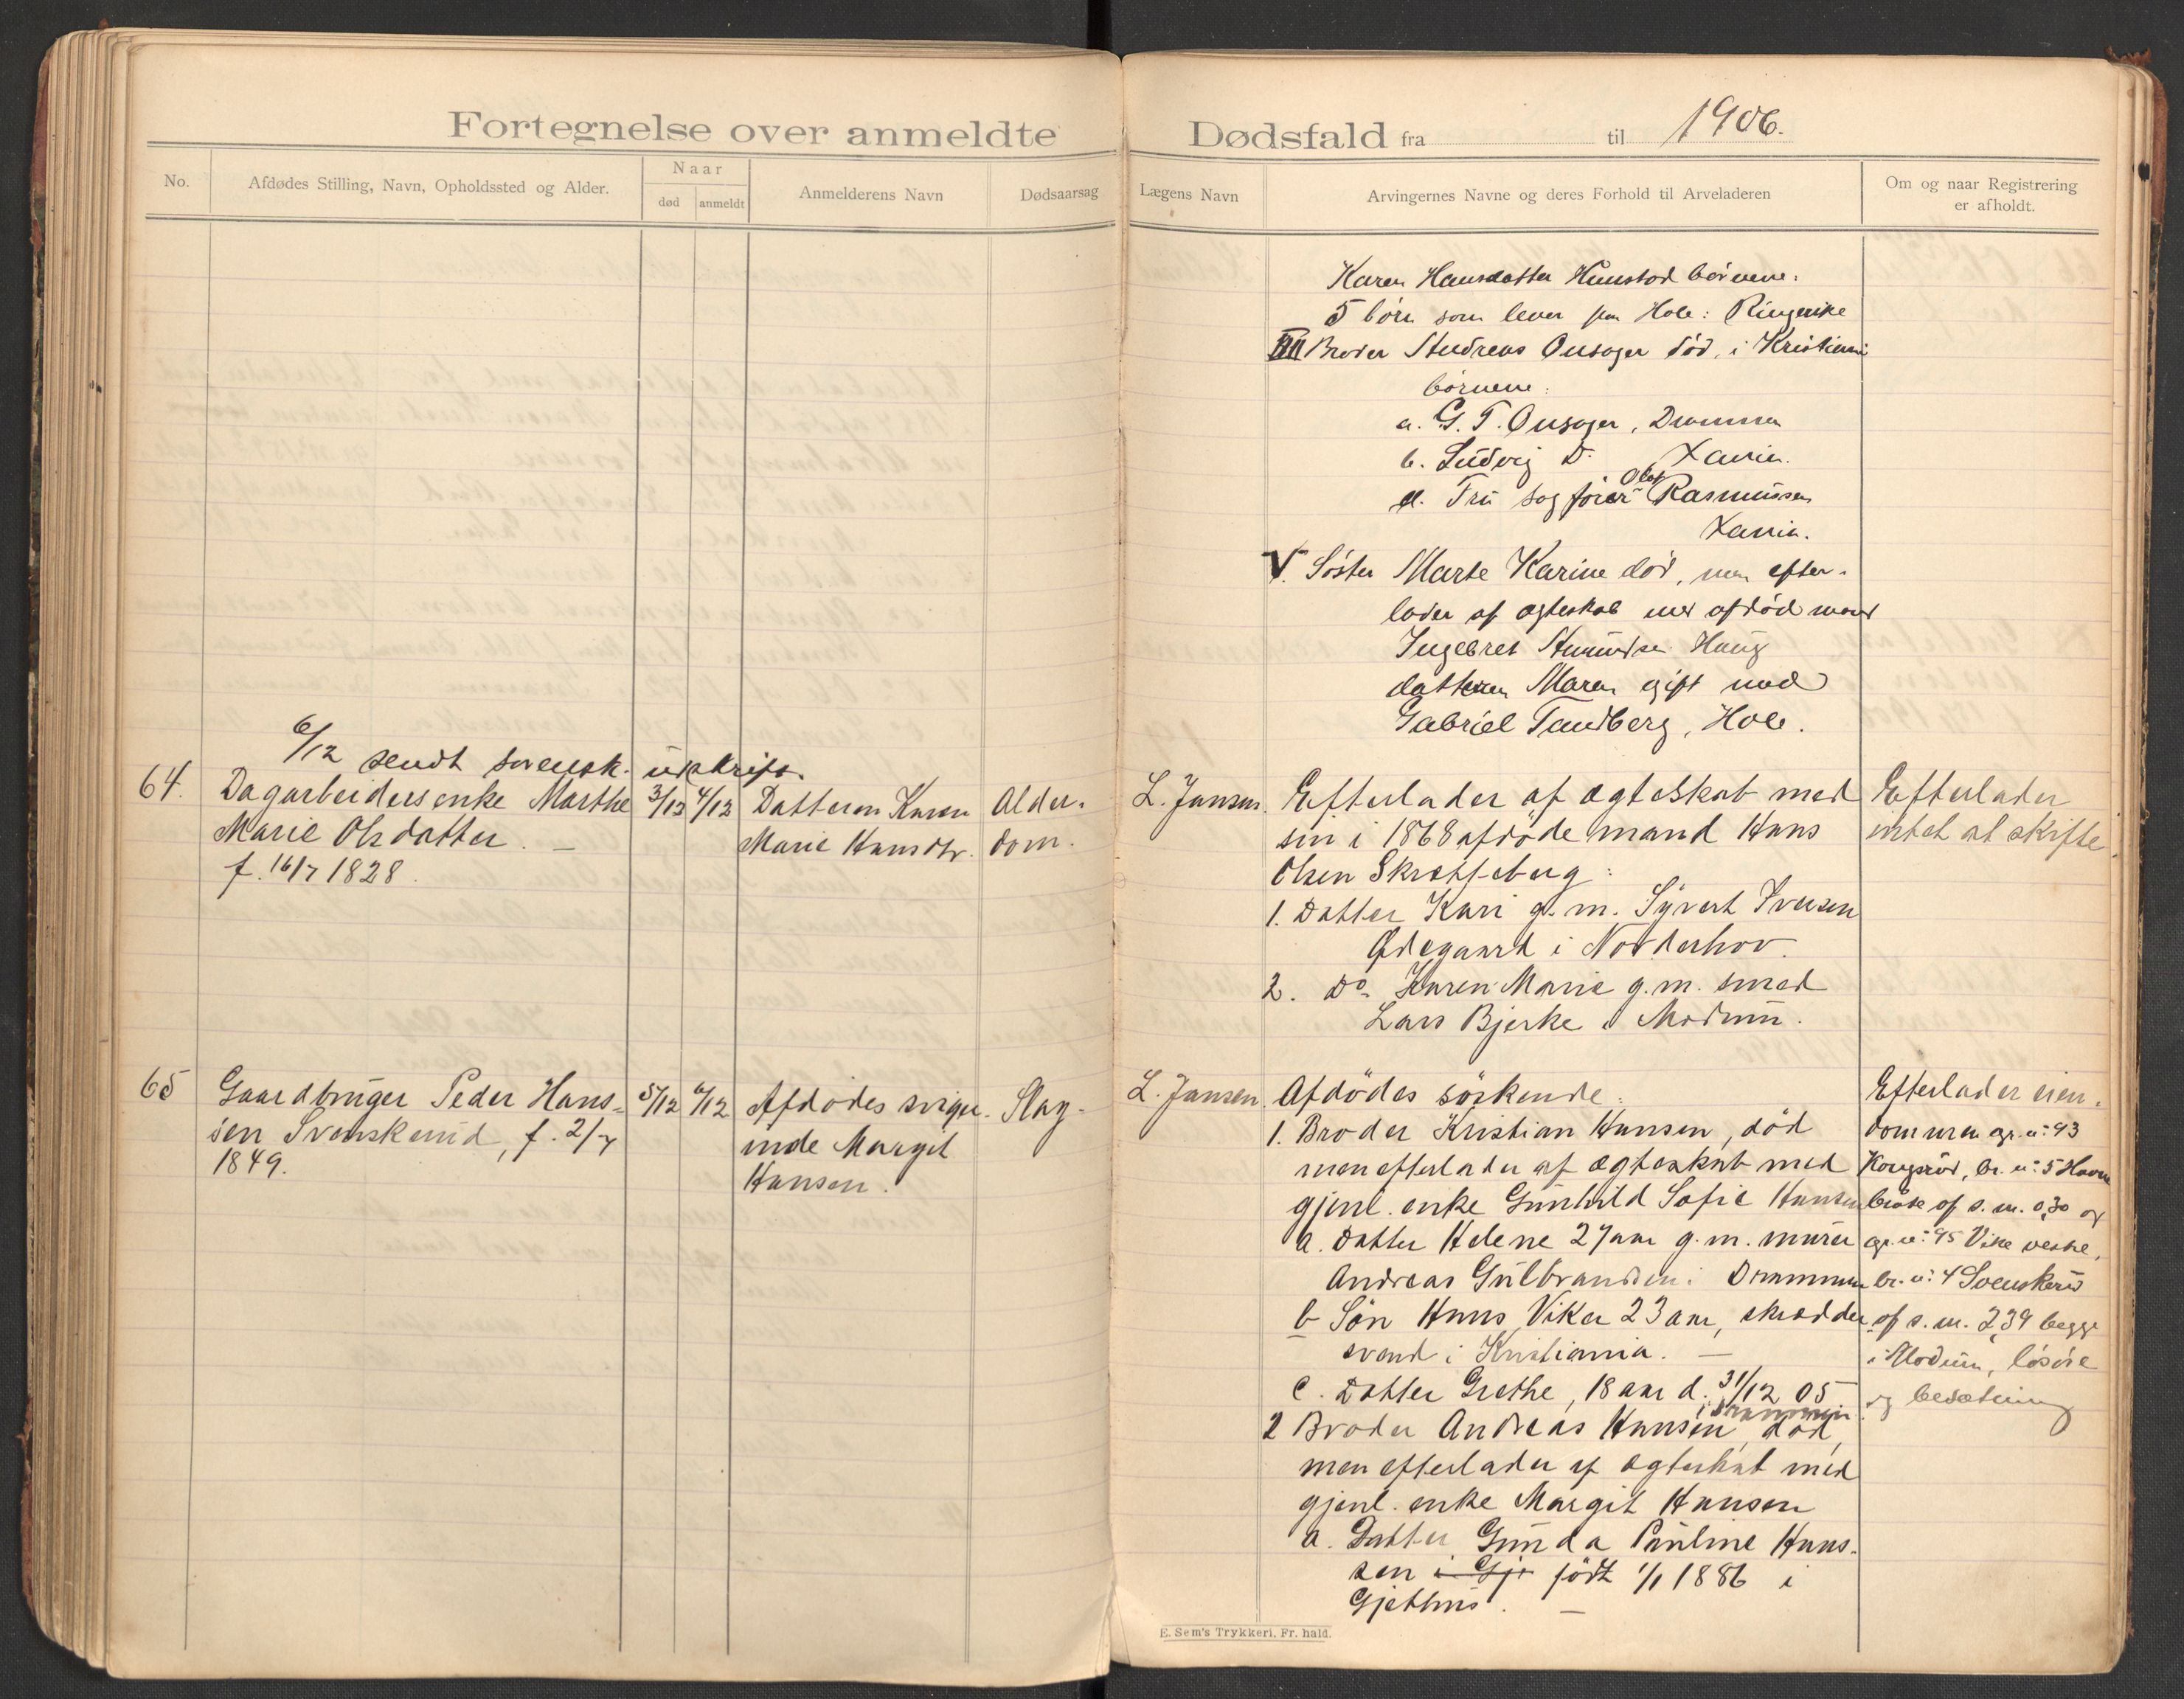 Fortegnelse over anmeldte Dødsfald fra til 1906.
No.
Afdødes Stilling, Navn, Opholdssted og Alder.
Naar
død
anmeldt
Anmelderens Navn
Dødsaarsag
Lægens Navn
Arvingernes Navne og deres Forhold til Arveladeren
Om og naar Registrering
er afholdt.
Karen Hansdatter børnene:
5 børn som lever paa Hole: Ringerike
Broder Andreas Onsager død, i Kristiania
børnene:
a. G. T. Onsager, Drammen
b. Ludvig Do Xania.
Fru sagfører Olaf Rasmussen
Xania.
V. Søster Marte Karine død, men efter-
lader af ægteskab med afdød mand
Ingebret Amundsen Haug
datteren Maren gift med
Gabriel Tandberg, Hole.
6/12 sendt svensk. utskrift.
64.
Dagarbeidersenke Marthe
Marie Olsdatter. —
f. 16/7 1828.
3/12
4/12
Datteren Karen
Marie Hansdtr.
Alder-
dom.
L. Jansen.
Efterlader af ægteskab med
sin i 1868 afdøde mand Hans
Olsen Skrætteberg:
1. Datter Kari g. m. Syvert Iversen
Ødegaard i Norderhov.
2. Do Karen Marie g. m. smed
Lars Bjerke i Modum.
Efterlader
intet at skifte.
65
Gaardbruger Peder Hans-
sen Svenskerud, f. 2/7
1849.
5/12
6/12
Afdødes sviger-
inde Margit
Hansen.
Slag-
L. Jansen.
Afdødes søskende:
1. Broder Kristian Hansen, død
men efterlader af ægteskab med
gjenl. enke Gunhild Sofie Hansen
a. Datter Helene 27 aar g. m. murer
Andreas Gulbrandsen i Drammen
b Søn Hans Viker 23 aar, skrædder-
svend i Kristiania. —
c. Datter Grethe, 18 aar d. 31/12 05
i Drammen
2 Broder Andreas Hansen, død,
men efterlader af ægteskab med
gjenl. enke Margit Hansen
a. Datter Gunda Pauline Hans-
sen i Gje født 1/1 1886 i
Gjethus. —
Efterlader eien-
dommen gr. n: 93
Kongsrud, br. n: 5 Havne
bråte af s. m. 0,30 og
gr. n: 95 Vike vestre,
br. n: 4 Svenskerud
af s. m. 2,39 begge
i Modum, løsøre
og besætning
E. Sem's Trykkeri, Fr. hald.